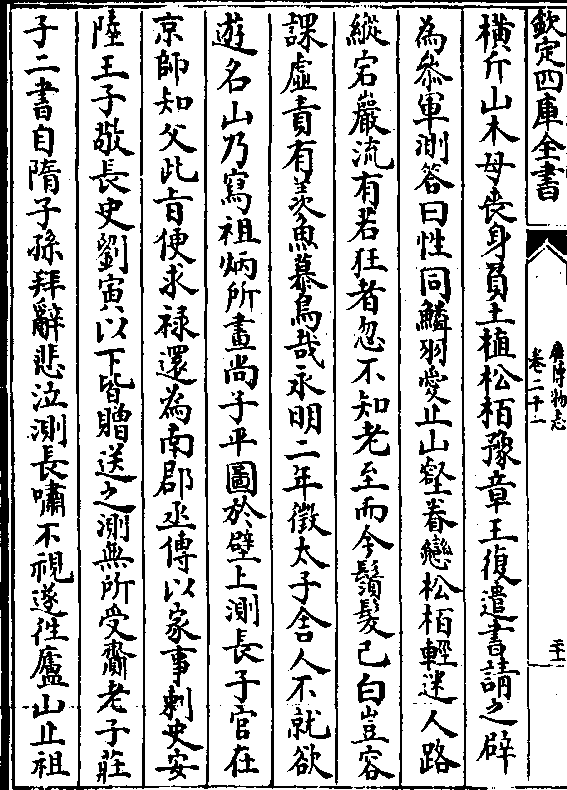 欽定四庫全書
廣博物志
卷二十一
橫斤山木母喪身負土植松栢豫章王復遣書請之辟
為叅軍測答曰性同鱗羽愛止山壑眷戀松栢輕迷人路
縱宕巖流有若狂者忽不知老至而今鬚髮已白豈容
課虛責有羨魚慕鳥哉永明二年徵太子舍人不就欲
遊名山乃寫祖炳所畫尚子平圖於壁上測長子官在
京師知父此旨便求禄還為南郡丞傳以家事刺史安
陸王子敬長史劉寅以下皆贈送之測無所受齎老子莊
子二書自隋子孫拜辭悲泣測長嘯不視遂徃廬山止祖